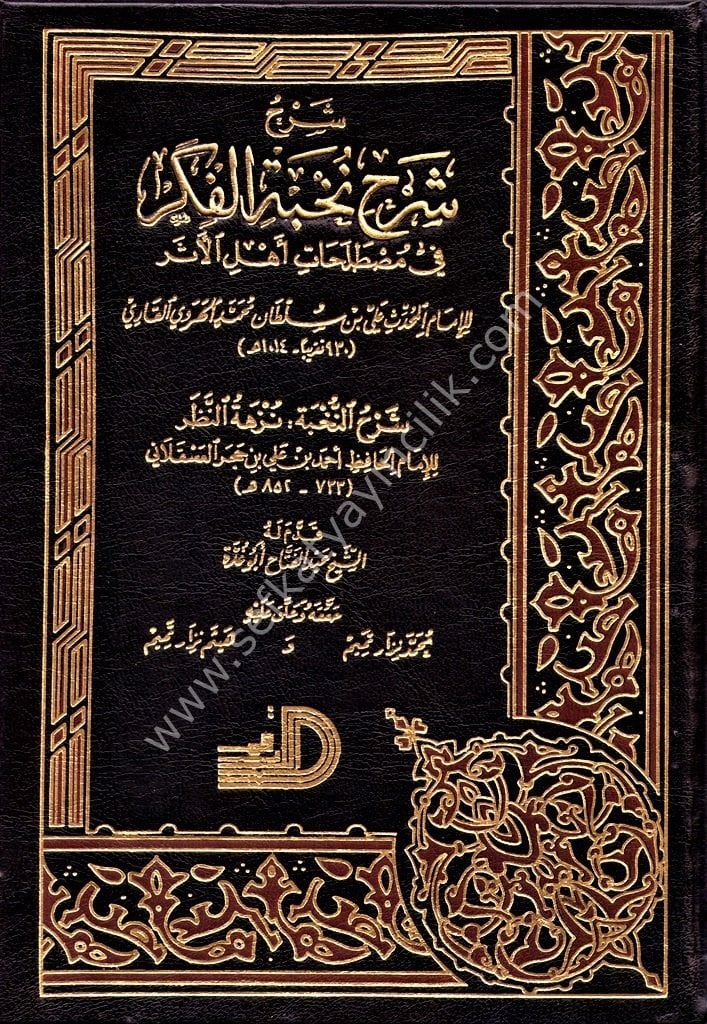 شَرْحُ
شَرْح نُخْبَةِ الفِكَر
في مُصْطَلَحَاتِ أَهْلِ الأَثَر
للإمام المُحَدِّث عَلي بن سُلْطَان مُحَمَّد الهَرَوي القَاري
(٩٣٠ تقريباً - ١٠١٤هـ)
شَرْحُ النُّخْبَة: نُزْهَةُ النَّظَر
للإمام الحَافِظ أحمد بن عَلي بن حَجَر العَسْقَلَاني
(٧٧٣ - ٨٥٢ هـ)
قَدَّمَ لَهُ
الشَّيخ عَبد الفَتَّاح أبُو غُدَّة
حَقَّقَهُ وَعَلَّقَ عَلَيْهِ
محمَّد نِزار تَميم وَ هَيثم نِزار تَميم
www.sefkatyayincilik.com